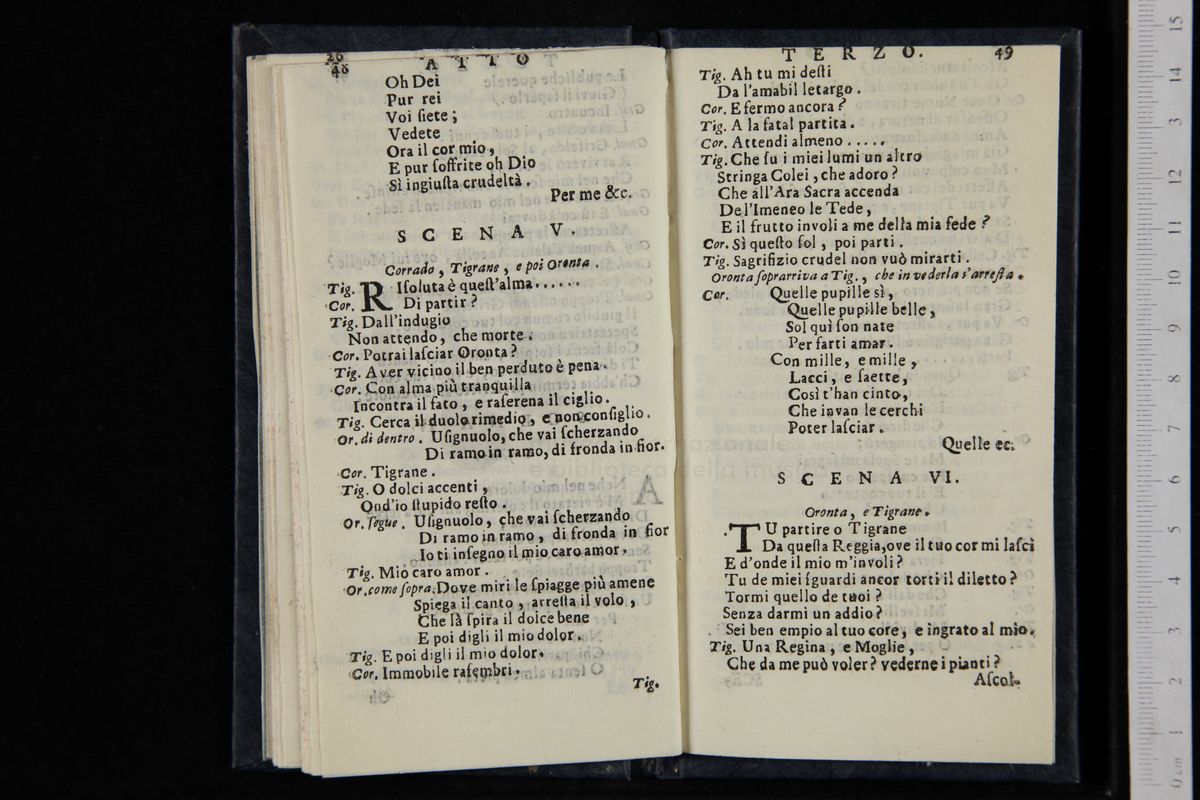 48
ATTO
Oh Dei
Pur rei
Voi ſiete;
Vedete
Ora il cor mio,
E pur ſoffrite oh Dio
Sì ingiuſta crudeltà.
Per me &c.
SCENA V.
Corrado, Tigrane, e poi Oronta.
Tig. RIſoluta è queſt'alma......
Cor. Di partir?
Tig. Dall'indugio
Non attendo, che morte.
Cor. Potrai laſciar Oronta?
Tig. Aver vicino il ben perduto è pena.
Cor. Con alma più tranquilla
Incontra il fato, e raſerena il ciglio.
Tig. Cerca il duolo rimedio, e non conſiglio.
Or. di dentro. Uſignuolo, che vai ſcherzando
Di ramo in ramo, di fronda in fior.
Cor. Tigrane.
Tig. O dolci accenti,
Ond'io ſtupido reſto.
Or. ſegue. Uſignuolo, che vai ſcherzando
Di ramo in ramo, di fronda in fior
Io ti inſegno il mio caro amor.
Tig. Mio caro amor.
Or. come ſopra. Dove miri le ſpiagge più amene
Spiega il canto, arreſta il volo,
Che là ſpira il dolce bene
E poi digli il mio dolor.
Tig. E poi digli il mio dolor.
Cor. Immobile raſembri.
Tig.
TERZO. 49
Tig. Ah tu mi deſti
Da l'amabil letargo.
Cor. E fermo ancora?
Tig. A la fatal partita.
Cor. Attendi almeno.....
Tig. Che ſu i miei lumi un altro
Stringa Colei, che adoro?
Che all'Ara Sacra accenda
De l'Imeneo le Tede,
E il frutto involi a me della mia fede?
Cor. Sì queſto ſol, poi parti.
Tig. Sagrifizio crudel non vuò mirarti.
Oronta ſoprarriva a Tig., che in vederla s'arreſta.
Cor. Quelle pupille sì,
Quelle pupille belle,
Sol quì ſon nate
Per farti amar.
Con mille, e mille,
Lacci, e ſaette,
Così t'han cinto,
Che invan le cerchi
Poter laſciar.
Quelle ec.
SCENA VI.
Oronta, e Tigrane.
TU partire o Tigrane
Da queſta Reggia, ove il tuo cor mi laſci
E d'onde il mio m'involi?
Tu de miei ſguardi ancor torti il diletto?
Tormi quello de tuoi?
Senza darmi un addio?
Sei ben empio al tuo core, e ingrato al mio.
Tig. Una Regina, e Moglie,
Che da me può voler? vederne i pianti?
Aſcol-